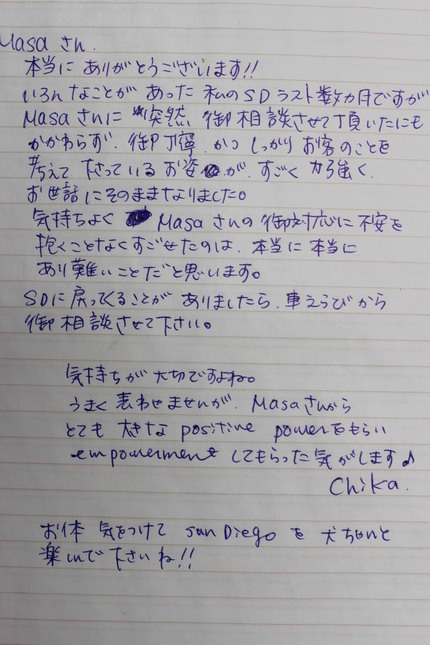 Masa さん.
本当に ありがとうございます!!
いろんなことが あった 私の SD ラスト数カ月ですが
Masa さんに 突然、御相談させて頂いたにも
かかわらず、御丁寧、かつ しっかり お客のことを
考えて 下さっている お姿が、すごく 力強く、
お世話にそのままなりました。
気持ちよく Masa さんの 御対応に不安を
抱くことなくすごせたのは、本当に本当に
あり難いことだと思います。
SDに戻ってくることが ありましたら、車えらびから
御相談させて下さい。
気持ちが 大切ですよね。
うまく 表わせませんが、Masaさんから
とても 大きな positive powerをもらい
empowerment してもらった気がします♪
Chika.
お体 気をつけて San Diego を
楽しんで 下さいね!!